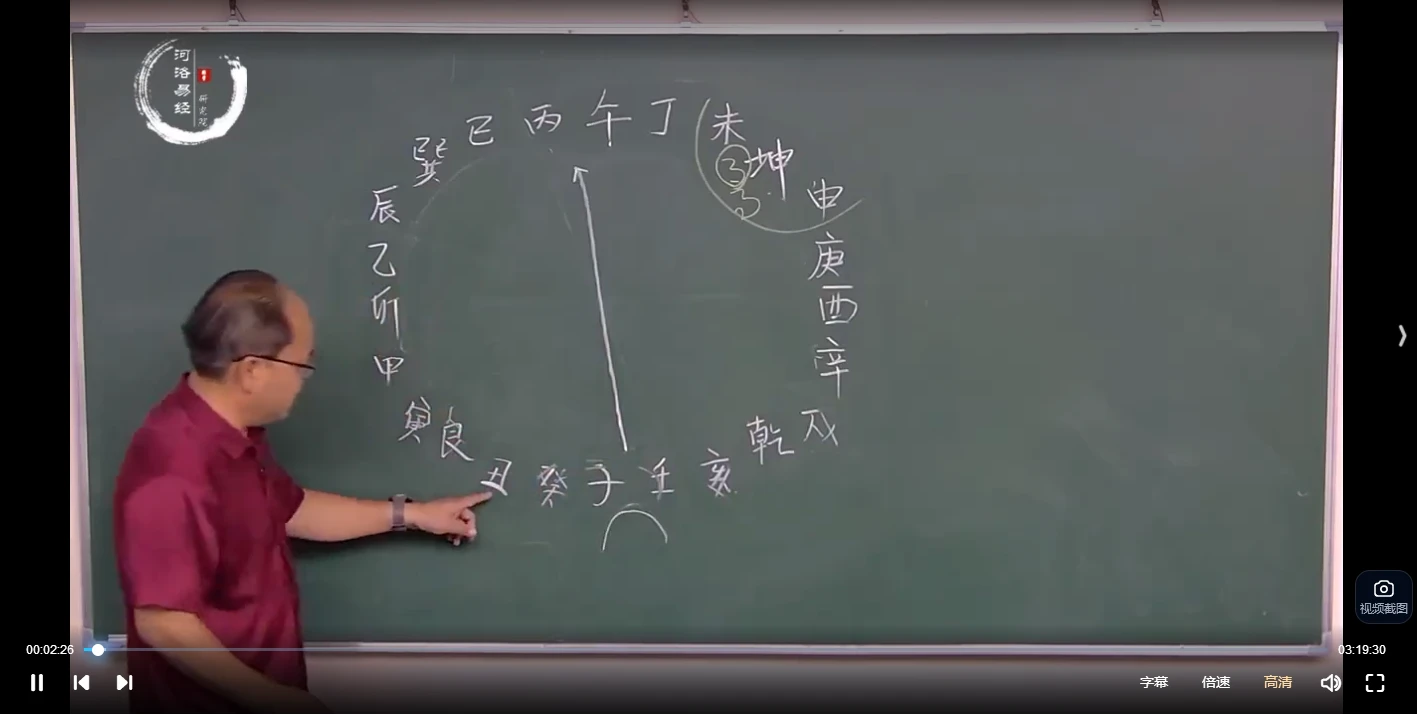 河洛易经
研究院
巽 巳 丙 午 丁 未
坤
辰 申
乙 庚
卯 酉
甲 辛
寅 艮 乾 戌
丑 癸 子 壬 亥
视频截图
00:02:26
03:19:30
字幕 倍速 高清